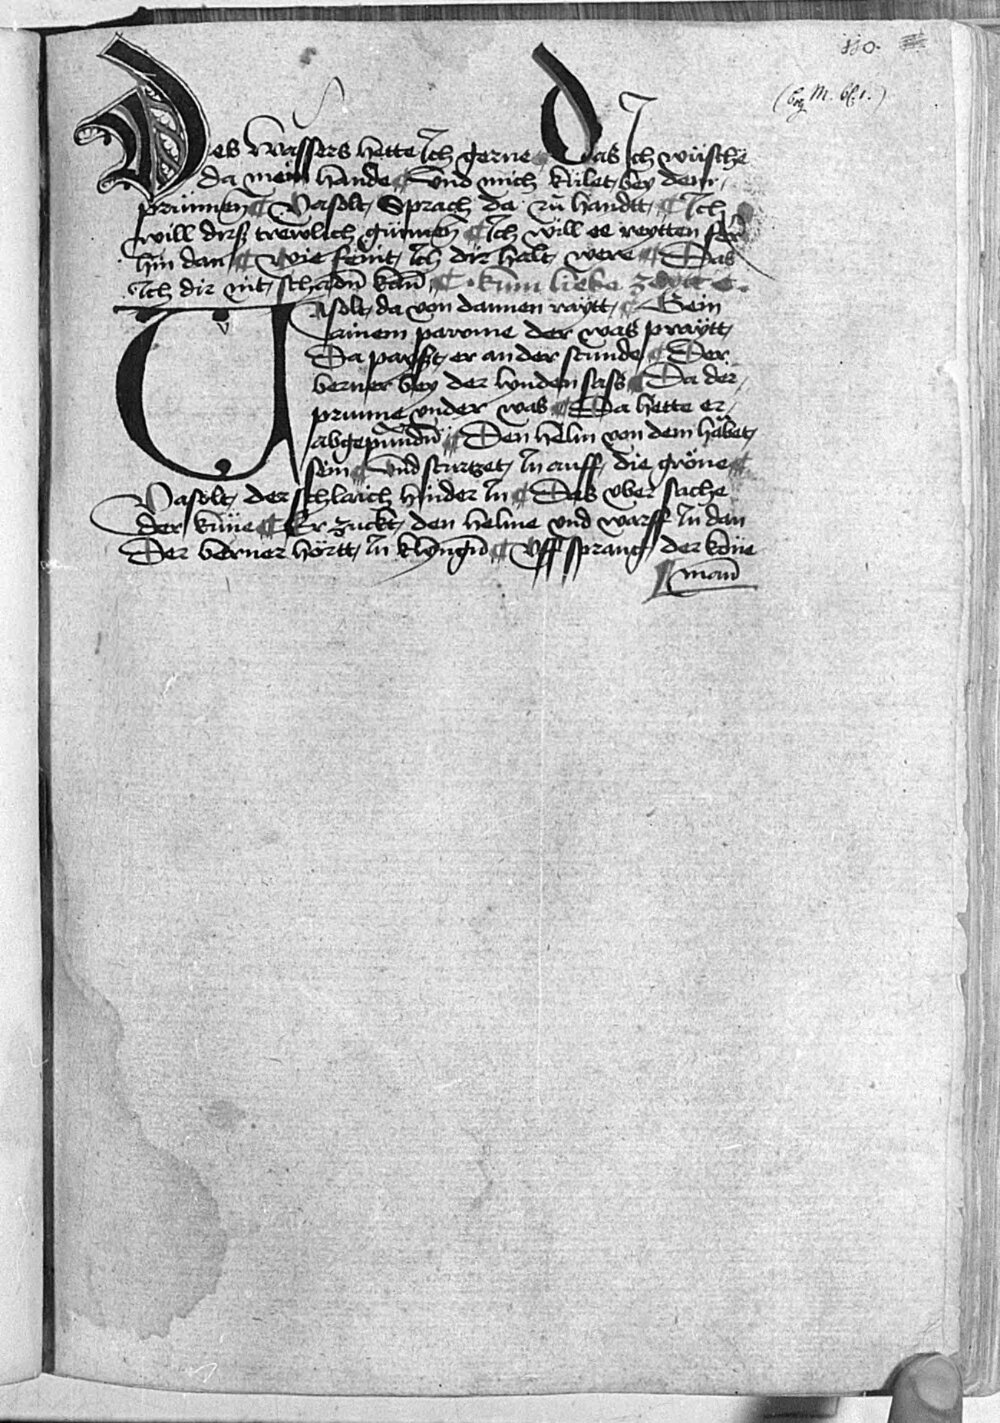 110.
Des wassers hette Ich gerne ¶ Das Ich wüsche
da mein hande ¶ Vnd mich kület, bey dem,
prünnen ¶ Vasolt, Sprach da zu handtt, ¶ Ich
will dirß trewlich günnen ¶ Ich will ee reytten ferr
hin dan ¶ Wie feint, Ich dir halt, were ¶ Das
Ich dir nit, schadñ kan ¶ · kum liebe zeytt e ·
Vasolt, da von dannen raytt, ¶ Gein
ainem pawme der was praytt,
Da payszt, er an der stunde ¶ Der
berner bey der lynden sass ¶ Da der,
prunne vnder was ¶ Da hette er,
abgepundñ ¶ Den helm von dem habet,
sein ¶ Vnd sturtzet, In auff, die gröne ¶
Vasolt, der schlaich hinder In ¶ Das vber sache
der küne ¶ Er zuckt, den helme vnd warff In dan
Der berner hörtt, In klyngñ ¶ Vff sprang der küne
man